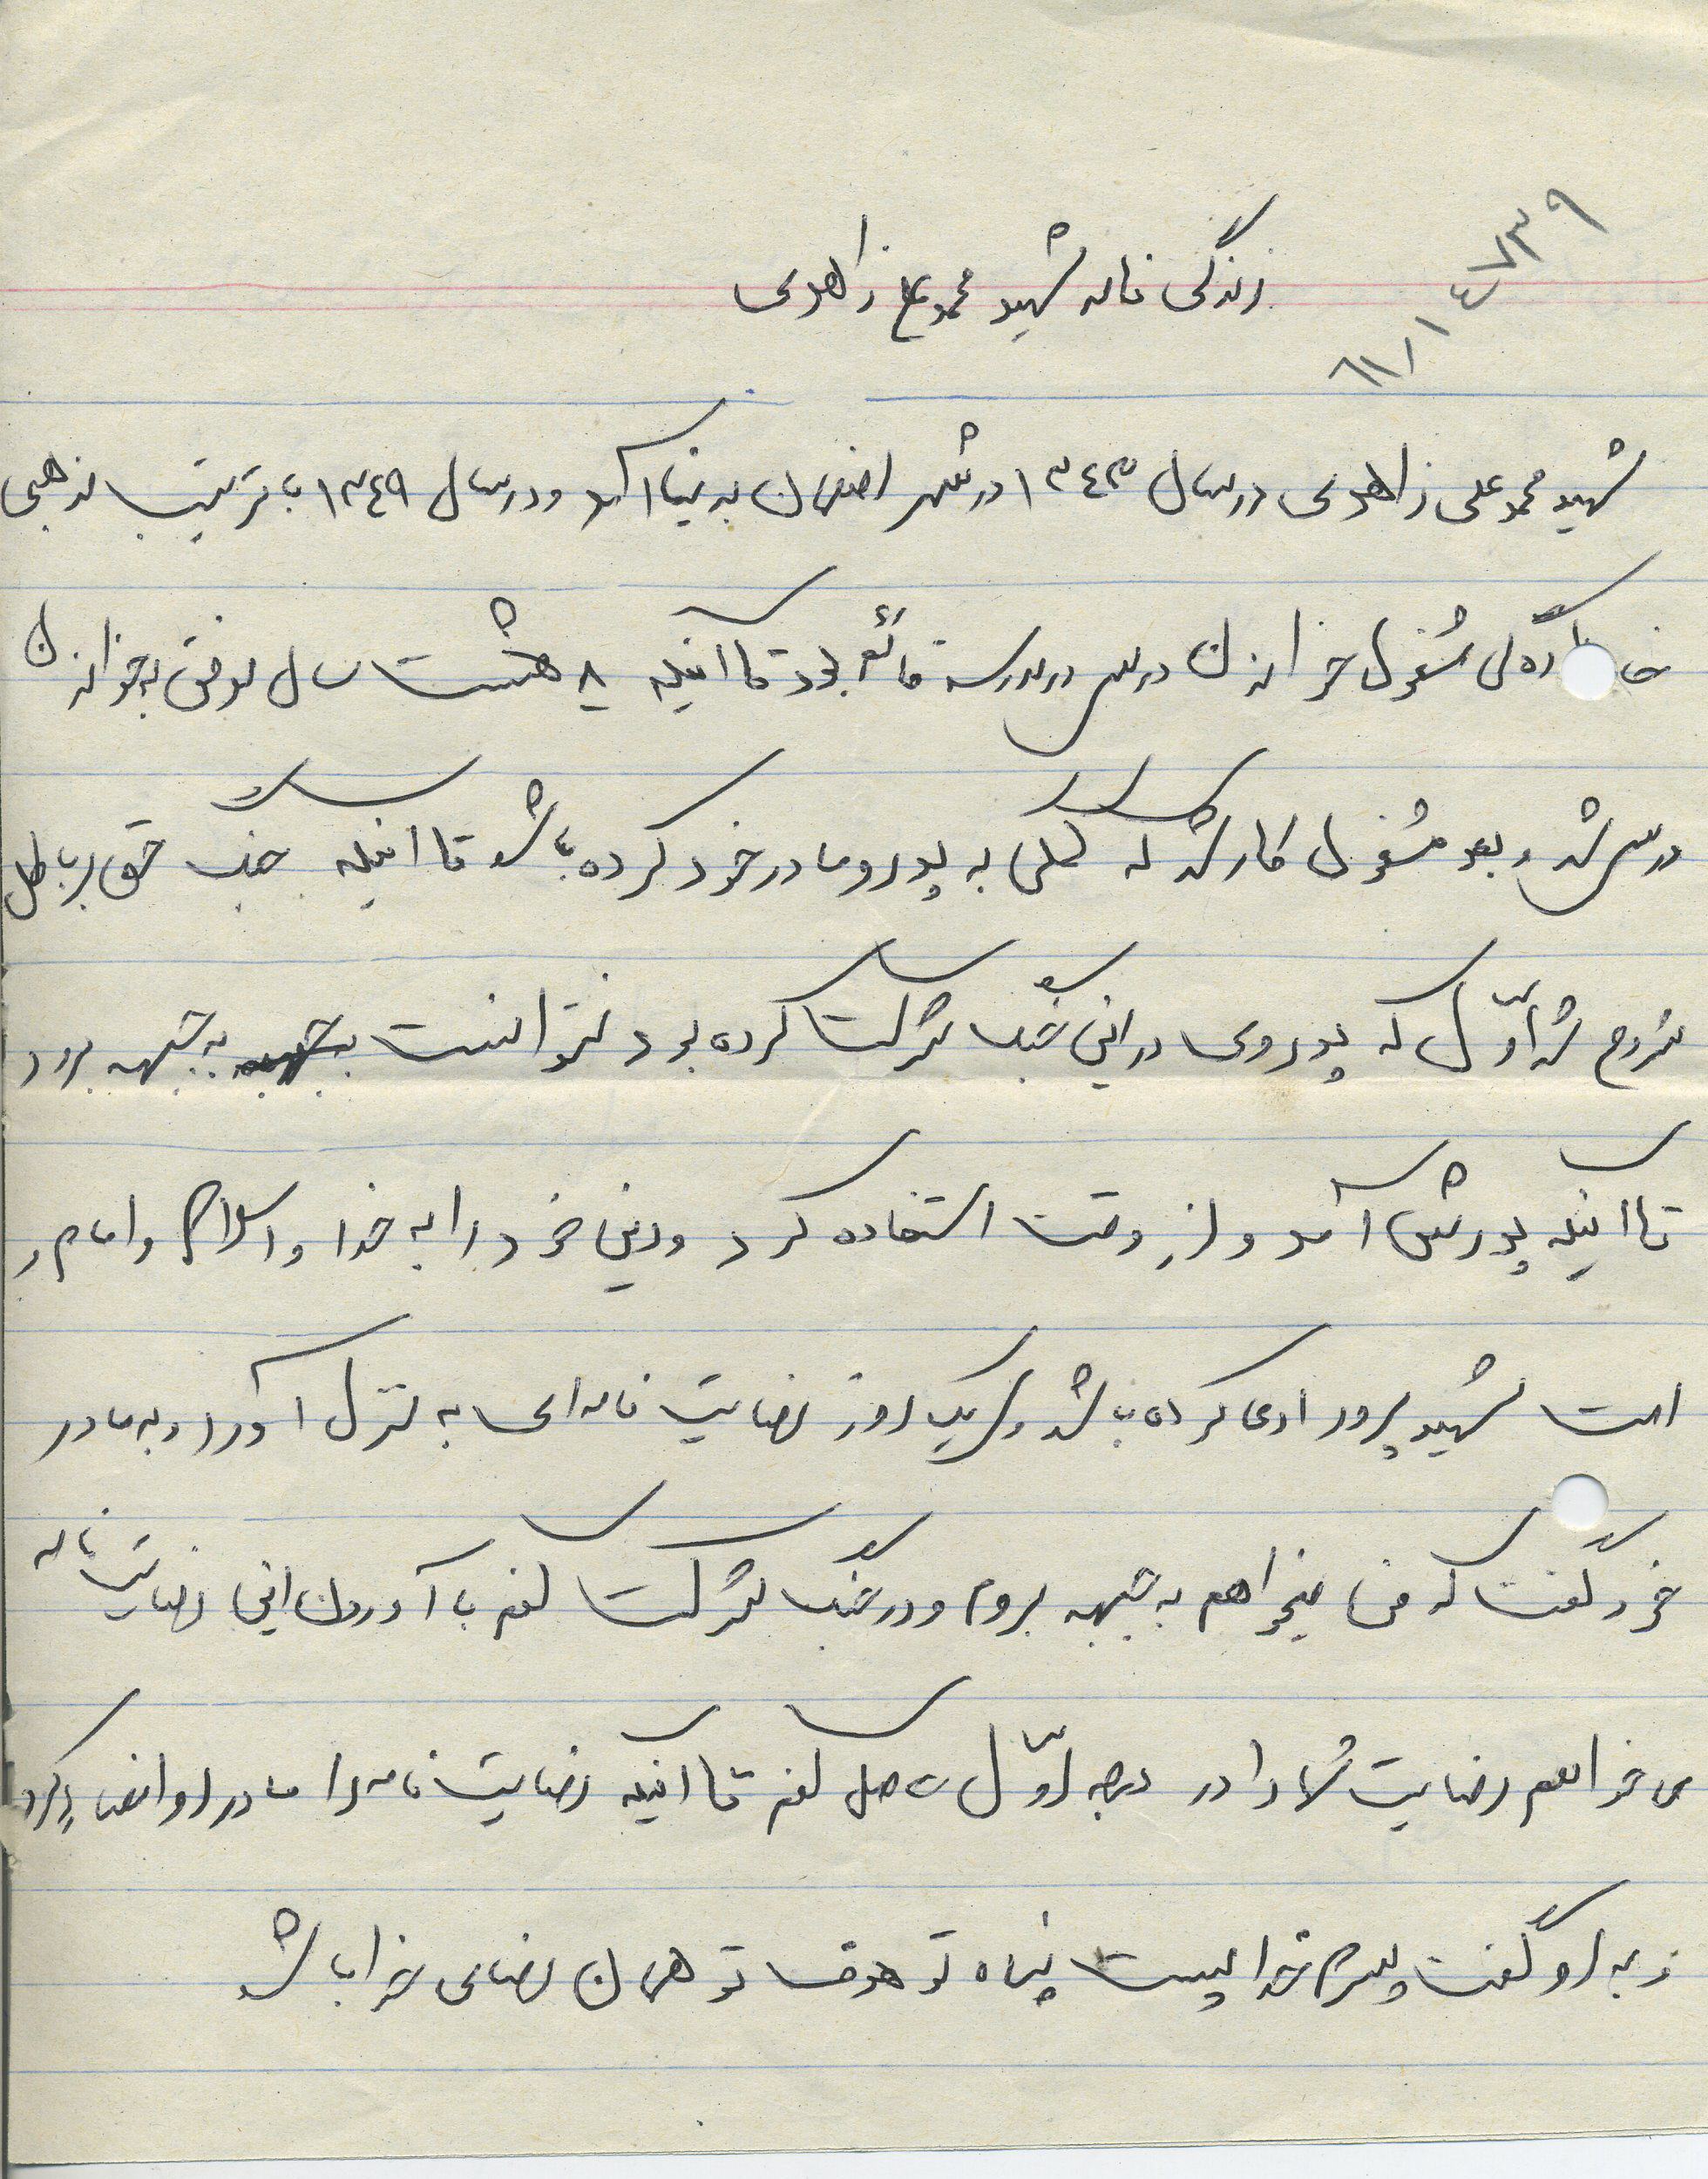 زندگی نامه شهید محمدعلی زاهدی
شهید محمدعلی زاهدی در سال ۱۳۴۳ در شهر اصفهان به دنیا آمد و در سال ۱۳۴۹ با تربیت مذهبی
خانواده‌ای مشغول خواندن درس در مدرسه قائم بود تا اینکه ۸ هشت سال موفق به خواندن
درس شد و بعد مشغول کار شد که کمکی به پدر و مادر خود کرده باشد تا اینکه جنگ حق بر باطل
شروع شد اوّل که پدر وی در این جنگ شرکت کرده بود نتوانست به جبهه برود
تا اینکه پدرش آمد و از وقت استفاده کرد و دین خود را به خدا و اسلام و امام و
امت شهیدپرور ادی کرده باشد و یک روز رضایت نامه‌ای به منزل آورد و به مادر
خود گفت که من میخواهم به جبهه بروم و در جنگ شرکت کنم با آوردن این رضایت نامه
می خواهم رضایت شما را در درجه اوّل حاصل کنم تا اینکه رضایت نامه را مادر او امضاء کرد
و به او گفت پسرم خدا پشت پناه تو هدف تو همان رضای خدا باشد